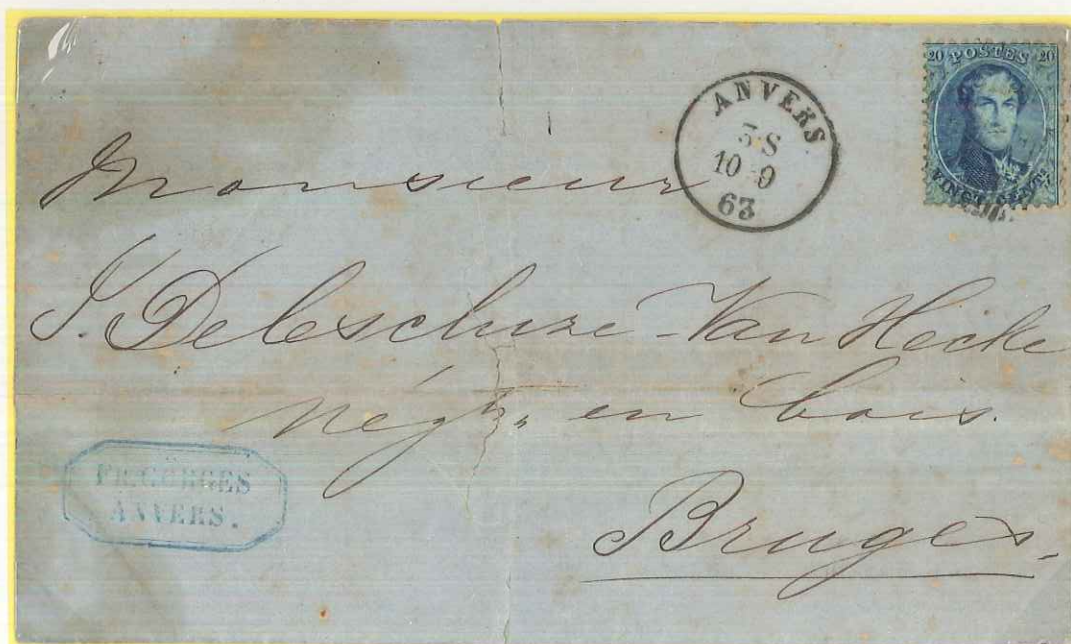 20 POSTES 20
VINGT CENT.
ANVERS
5·S
10 9
63
Monsieur
S. Delescluze-Van Hecke
Négt. en bois.
FR. GÖRGES
ANVERS.
Bruges.